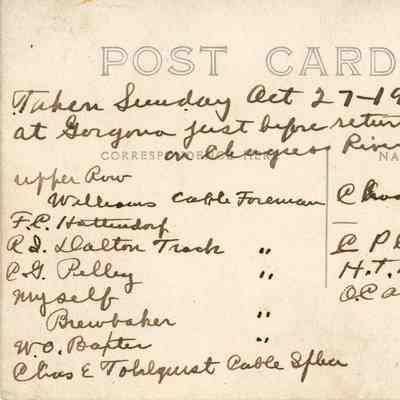 POST CARD
Taken Sunday Oct 27-19
at Gorgona just before return
CORRESPONDENCE HERE
on Chagress River
NA
upper Row
Williams Cable Foreman
F.C. Hattendorf
R.I. Dalton Track "
C.G. Pelley "
myself
Brewbaker "
W.O. Baxter "
Chas E Tohlquist Cable Splicer
C P
H.T.
O.C a